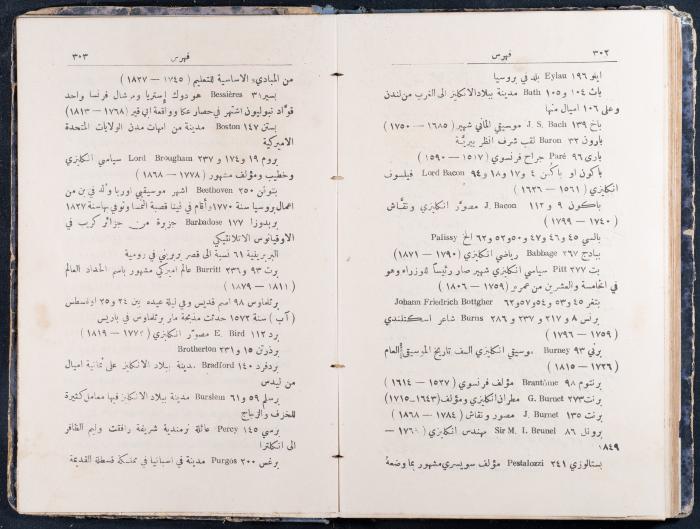 ٣٠٢ فهرس
ايلو ١٩٦ Eylau بلد في بروسيا
باث ١٠٤ و١٠٥ Bath مدينة ببلاد الانكليز الى الغرب من لندن
وعلى ١٠٦ اميال منها
باخ ١٣٩ J. S. Bach موسيقي الماني شهير (١٦٨٥ — ١٧٥٠)
بارون ٣٢ Baron لقب شرف انظر بيريّة
باري ٩٦ Paré جراح فرنسوي (١٥١٧ — ١٥٩٠)
باكون او باكُن ٤ و١٧ و١٨ و٩٤ Lord Bacon فيلسوف
انكليزي (١٥٦١ — ١٦٢٦)
باكون ٩ و١١٢ J. Bacon مصوّر انكليزي ونقّاش
(١٧٤٠ — ١٧٩٩)
بالسي ٤٥ و٤٦ و٤٧ و٥٠ و٥٢ و٦٢ الخ Palissy
ببادج ٢٦٧ Babbage رياضي انكليزي (١٧٩٠ — ١٨٧١)
بت ٢٧٧ Pitt سياسي انكليزي شهير صار رئيساً للوزراء وهو
في الخامسة والعشرين من عمره (١٧٥٩ — ١٨٠٦)
بتغر ٤٥ و٥٣ و٥٤ و٥٧ و٦٢ Johann Friedrich Bottgher
برنس ٨ و٢١٧ و٢٣٧ و٢٨٦ Burns شاعر اسكتلندي
(١٧٥٩ — ١٧٩٦)
برني ٩٣ Burney موسيقي انكليزي الف تاريخ الموسيقى العام
(١٧٢٦ — ١٨١٥)
برنتوم ٩٨ Brantôme مؤلف فرنسوي (١٥٢٧ — ١٦١٤)
برنت ٢٧٣ G. Burnet مطران انكليزي ومؤلف (١٦٤٣–١٧١٥)
برنت ١٣٥ J. Burnet مصور ونقاش (١٧٨٤ — ١٨٦٨)
برونل ٨٦ Sir M. I. Brunel مهندس انكليزي (١٧٦٩ —
١٨٤٩
بستالوزي ٢٤١ Pestalozzi مؤلف سويسري مشهور بما وضعهُ
فهرس ٣٠٣
من المبادىء الاساسية للتعليم (١٧٤٥ — ١٨٢٧)
بسير ٣١ Bessières هو دوك إستريا ومرشال فرنسا واحد
قوّاد نبوليون اشتهر في حصار عكا وواقعة ابي قير (١٧٦٨ — ١٨١٣)
بستن ١٤٧ Boston مدينة من امهات مدن الولايات المتحدة
الاميركية
بروم ١٩ و١٧٤ و٢٣٧ Lord Brougham سياسي انكليزي
وخطيب ومؤلف مشهور (١٧٧٨ — ١٨٦٨)
بتوفن ٢٥٠ Beethoven اشهر موسيقيي اوربا وُلد في بن من
اعمال بروسيا سنة ١٧٧٠ واقام في فينا قصبة النمسا وتوفي بها سنة ١٨٢٧
بربدوزا ١٧٧ Barbadose جزيرة من جزائر كريب في
الاوقيانوس الاتلانتيكي
البربرينية ٦١ نسبة الى قصر بربريني في رومية
برت ٩٣ و٢٣٦ Burritt عالم اميركي مشهور باسم الحداد العالم
(١٨١١ — ١٨٧٩)
برثلماوس ٩٨ اسم قديس وفي ليلة عيده بين ٢٤ و٢٥ اوغسطس
(آب) سنة ١٥٧٢ حدثت مذبحة مار برثلماوس في باريس
برد ١١٢ E. Bird مصوّر انكليزي (١٧٧٢ — ١٨١٩)
برذرتن ١٥ و٢٣١ Brotherton
بردفرد ١٤٠ Bradford مدينة ببلاد الانكليز على ثمانية اميال
من ليدس
برسلم ٥٩ و٦١ Burslem مدينة ببلاد الانكليز فيها معامل كثيرة
للخزف والزجاج
برسي ١٤٥ Percy عائلة نرمندية شريفة رافقت وليم الظافر
الى انكلترا
برغس ٢٠٠ Purgos مدينة في اسبانيا في مملكة قسطلة القديمة